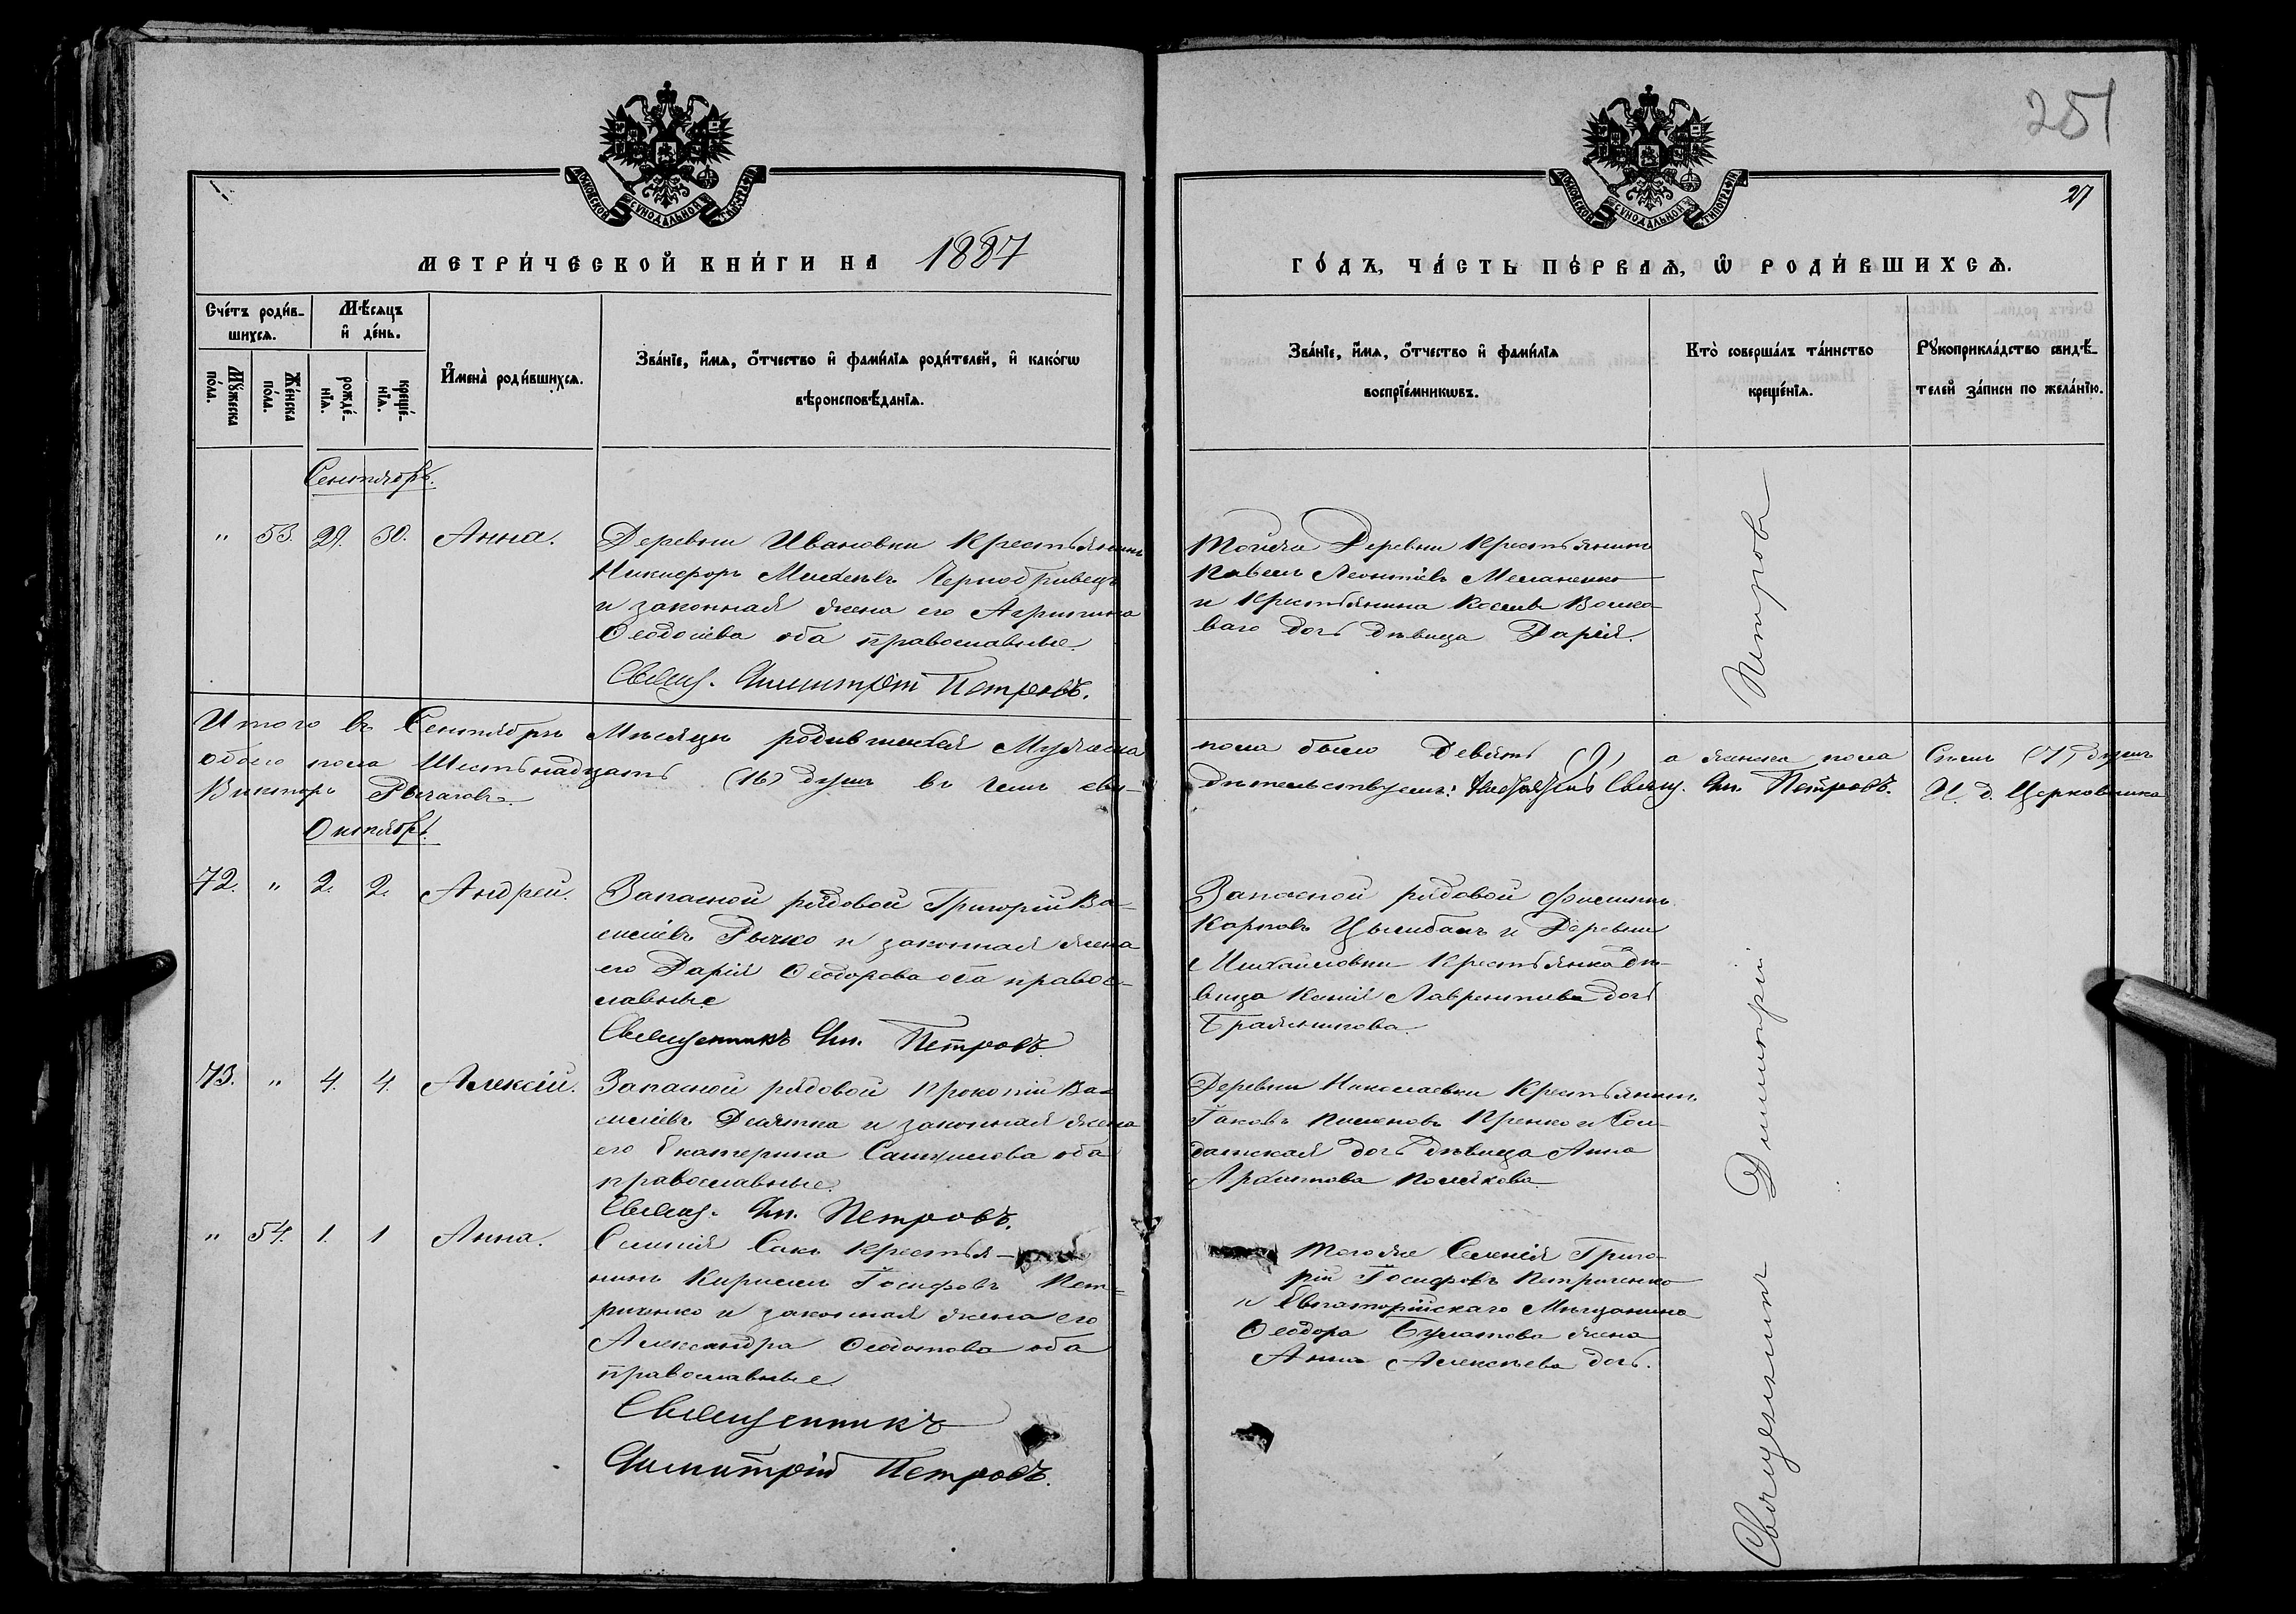 251
27
МОСКОВСКОЙ СѴНОДАЛЬНОЙ ТИПОГРАФІИ
МОСКОВСКОЙ СѴНОДАЛЬНОЙ ТИПОГРАФІИ
МЕТРИ́ЧЕСКОЙ КНИ́ГИ НА 1887
ГО́ДЪ, ЧА́СТЬ ПЕ́РВАѦ, Ѡ҆ РОДИ́ВШИХСѦ.
Сче́тъ роди́в-
шихсѧ.
Мѣ́сѧцъ
и҆ де́нь.
Мꙋ́жеска
по́ла.
Же́нска
по́ла.
рожде́-
нїѧ.
креще́-
нїѧ.
И҆мена̀ роди́вшихсѧ.
Зва́нїе, и҆́мѧ, ѻ҆́тчество и҆ фами́лїѧ роди́телей, и҆ како́гѡ
вѣроисповѣ́данїѧ.
Зва́нїе, и҆́мѧ, ѻ҆́тчество и҆ фами́лїѧ
воспрїе́мникѡвъ.
Кто̀ соверша́лъ та́инство
креще́нїѧ.
Рꙋкоприкла́дство свидѣ́-
телей за́писи по жела́нїю.
Сентябрь.
" 53. 29. 30. Анна.
Деревни Ивановки Крестьянинъ
Никифоръ Михеевъ Чернобривецъ
и законная жена его Агрипина
Ѳеодосіева оба православные.
Свящ. Димитрій Петровъ.
Тойже Деревни Крестьянинъ
Павелъ Леонтіевъ Меланенко
и Крестьянина Волко-
ваго дочь дѣвица Дарія.
Итого въ Сентябрѣ Мѣсяцѣ родившихся Мужеска
пола было Девять (9) а женска пола Семь (7) душъ
обоего пола Шестьнадцать (16) душъ въ чемъ сви-
дѣтельствуемъ: Свящ. Дм. Петровъ. И. д. Церковника
Викторъ Рычаговъ.
Октябрь.
72. " 2. 2. Андрей.
Запасной рядовой Григорій Ва-
силіевъ Рычко и законная жена
его Дарія Ѳеодорова оба правос-
лавные
Священникъ Дм. Петровъ.
Запасной рядовой Филиппъ
Карповъ Цымбалъ и Деревни
Михайловки Крестьянка дѣ-
вица Ксенія Лаврентіева дочь
73. " 4. 4. Алексій.
Запасной рядовой Прокопій Ва-
силіевъ Десятка и законная жена
его Екатерина Самуилова оба
православные.
Свящ. Дм. Петровъ.
Деревни Николаевки Крестьянинъ
Іаковъ Пименовъ Кренко и Сол-
датская дочь дѣвица Анна
Архипова Полякова.
" 54. 1. 1 Анна.
Селенія Саки Крестья-
нинъ Кириллъ Іосифовъ Пет-
риченко и законная жена его
Александра Ѳеодотова оба
православные.
Священникъ
Димитрій Петровъ.
Тогоже Селенія Григо-
рій Іосифовъ Петриченко
и Евпаторійскаго Мѣщанина
Ѳеодора Булатова жена
Анна Алексѣева дочь.
Священникъ Димитрій Петровъ